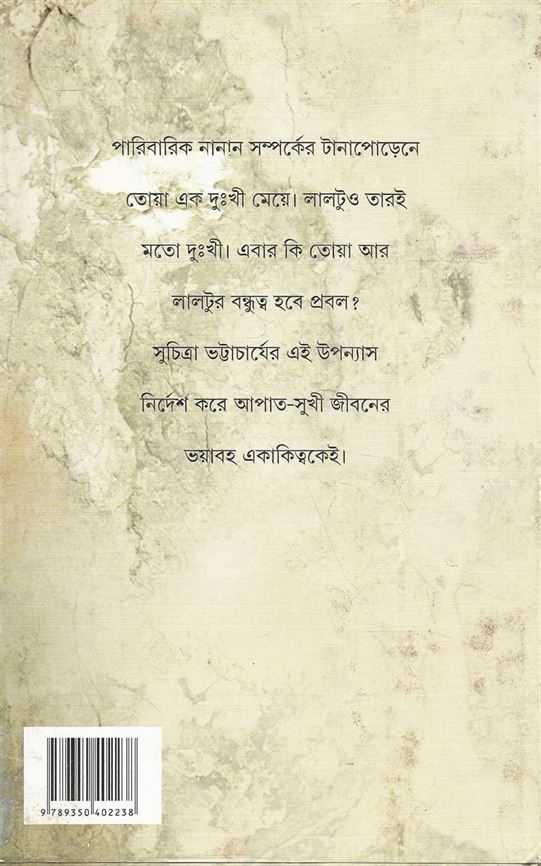 পারিবারিক নানান সম্পর্কের টানাপোড়েনে
তোয়া এক দুঃখী মেয়ে। লালটুও তারই
মতো দুঃখী। এবার কি তোয়া আর
লালটুর বন্ধুত্ব হবে প্রবল?
সুচিত্রা ভট্টাচার্যের এই উপন্যাস
নির্দেশ করে আপাত-সুখী জীবনের
ভয়াবহ একাকিত্বকেই।
9 789350 402238